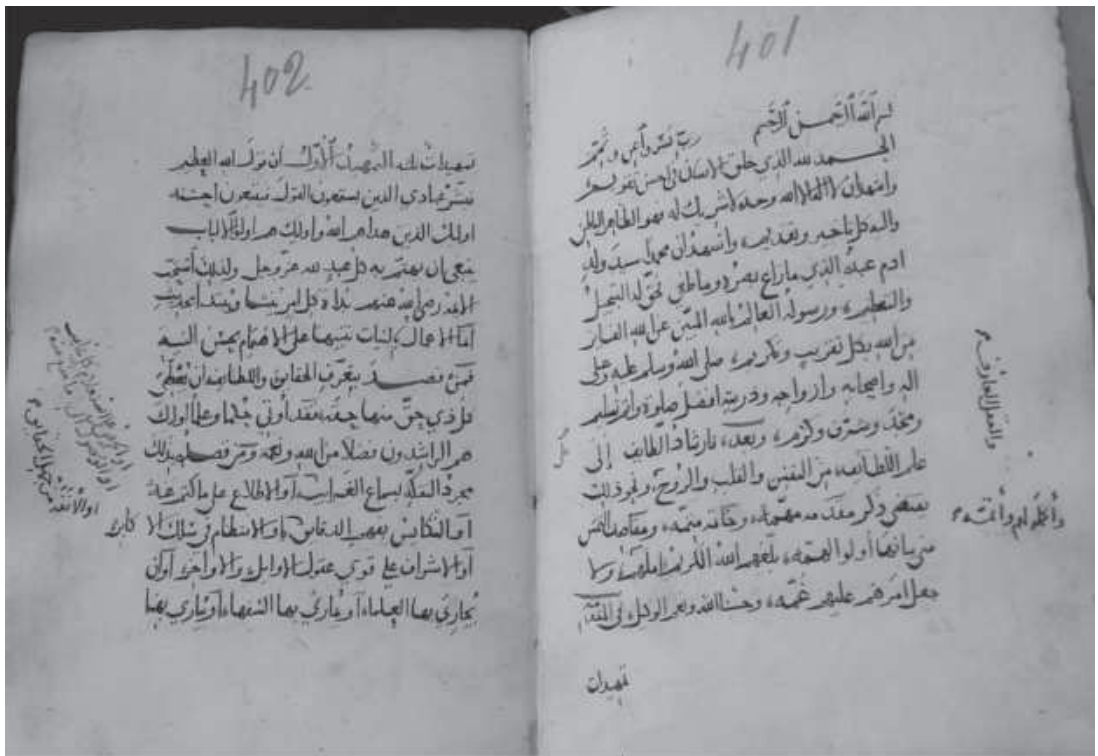 401
بسم الله الرحمن الرحيم رب يسر وأعن وتمم
الحمد لله الذي خلق الإنسان في أحسن تقويم
واشهد ان لا اله الا الله وحده لا شريك له فهو الظاهر الباطن
واشهد ان محمدا سيد ولد
ادم عبده الذي ما زاغ بصره وما طغى
والتعظيم ورسوله العالم بالله المبين عن الله الفائز
من الله بكل تقريب وتكريم صلى الله وسلم عليه وعلى
اله واصحابه وازواجه وذريته افضل صلوة واتم تسليم
ومجد وشرف وكرم وبعد فارشاد الطالب إلى
علم اللطائف من النفس والقلب والروح ونحو ذلك
يقتضي ذكر مقدمة مهمة وخاتمة متممة ومقاصد
بلغهم الله الكريم املهم ولا
جعل امرهم عليهم غمة وحسبنا الله ونعم الوكيل
تمهيدات
والعقل العارف
402
تمهيدات التمهيد الأول ان قول الله العظيم
فبشر عبادي الذين يستمعون القول فيتبعون احسنه
اولئك الذين هداهم الله واولئك هم اولو الالباب
ينبغي ان يهتم به كل عبد لله عز وجل ولذلك
رضي الله عنهم
انما الاعمال بالنيات تنبيها على الاهتمام بحسن النية
فمن قصد بتعرف الحقائق واللطائف ان يعطي
كل ذي حق منها حقه فقد أوتي حكما وعلما اولئك
هم الراشدون فضلا من الله ونعمة ومن قصد بذلك
مجرد التفكه بسماع الغرائب أو الاطلاع على ما
أو التكايس بفهم الدقائق أو الانتظام في سلك الا كابر
أو الاشراف على قوي عقول الاوائل والاواخر أو ان
يجاري بها العلماء أو يماري بها السفهاء أو